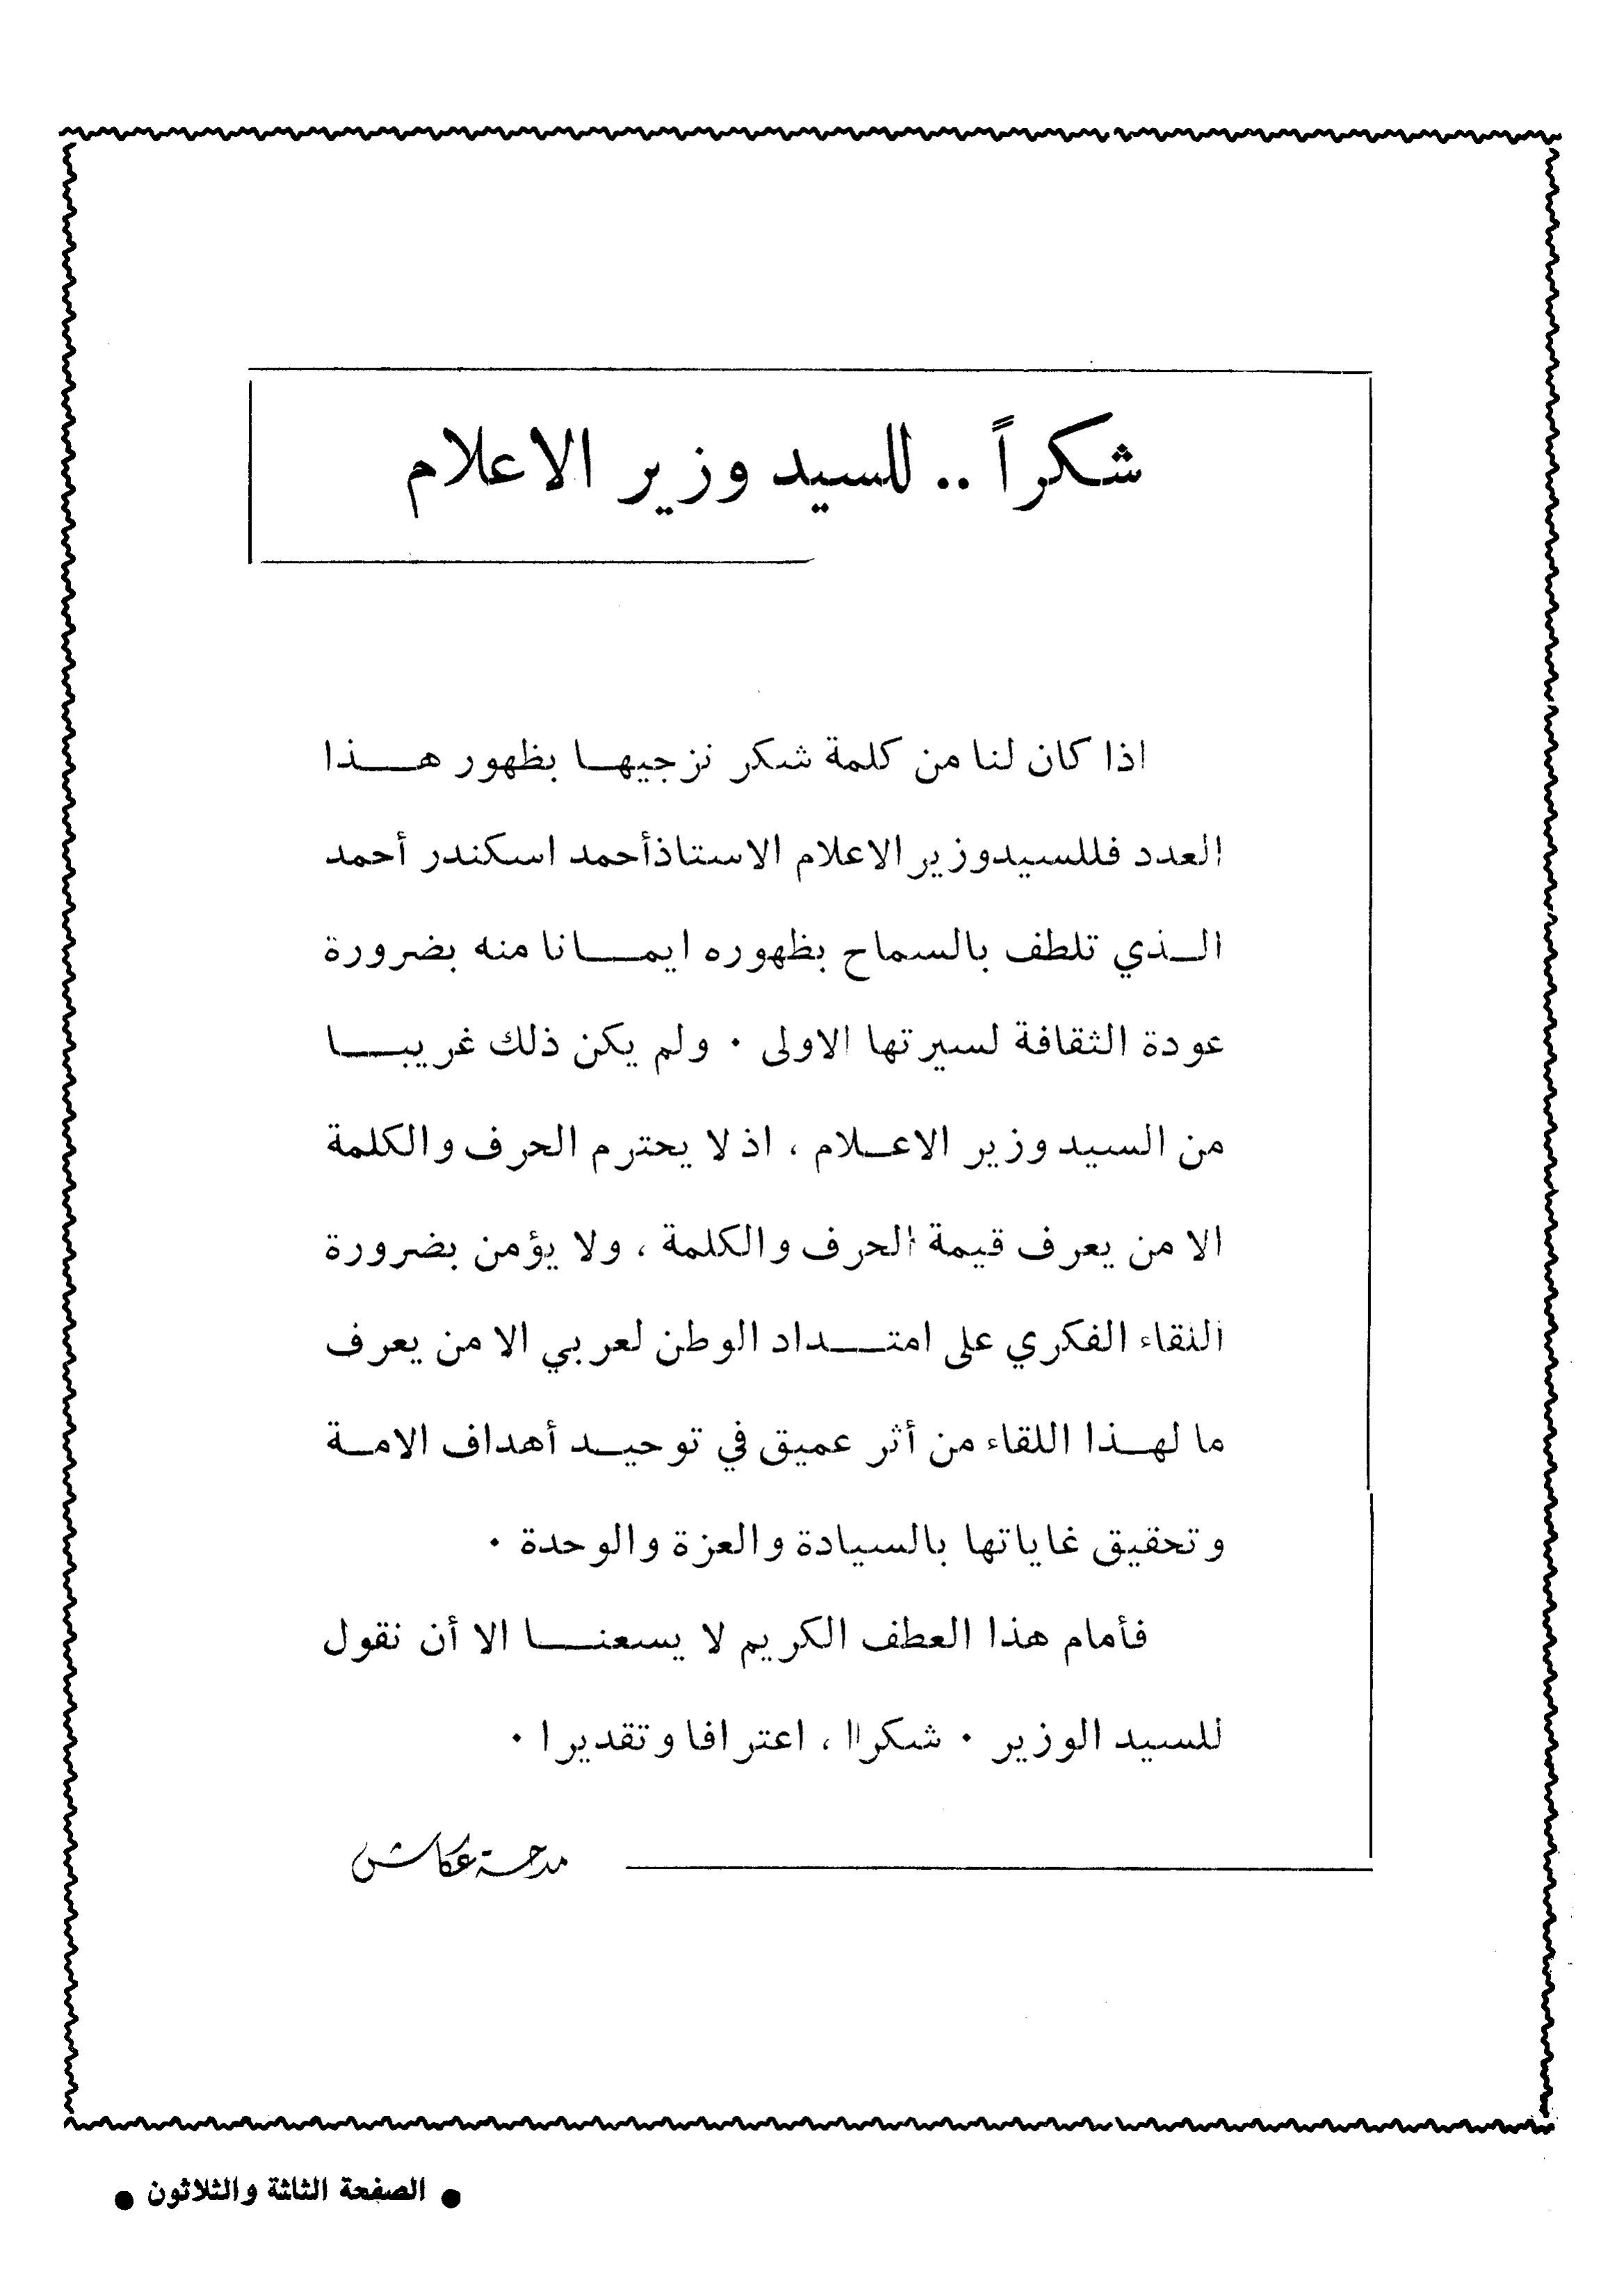 شكراً .. للسيد وزير الاعلام
اذا كان لنا من كلمة شكر نزجيها بظهور هذا
العدد فللسيد وزير الاعلام الاستاذ أحمد اسكندر أحمد
الذي تلطف بالسماح بظهوره ايمانا منه بضرورة
عودة الثقافة لسيرتها الاولى . ولم يكن ذلك غريبا
من السيد وزير الاعلام ، اذ لا يحترم الحرف والكلمة
الا من يعرف قيمة الحرف والكلمة ، ولا يؤمن بضرورة
اللقاء الفكري على امتداد الوطن لعربي الا من يعرف
ما لهذا اللقاء من أثر عميق في توحيد أهداف الامة
وتحقيق غاياتها بالسيادة والعزة والوحدة .
فأمام هذا العطف الكريم لا يسعنا الا أن نقول
للسيد الوزير . شكراا ، اعترافا وتقديرا .
مدحة عكاش
● الصفحة الثالثة والثلاثون ●